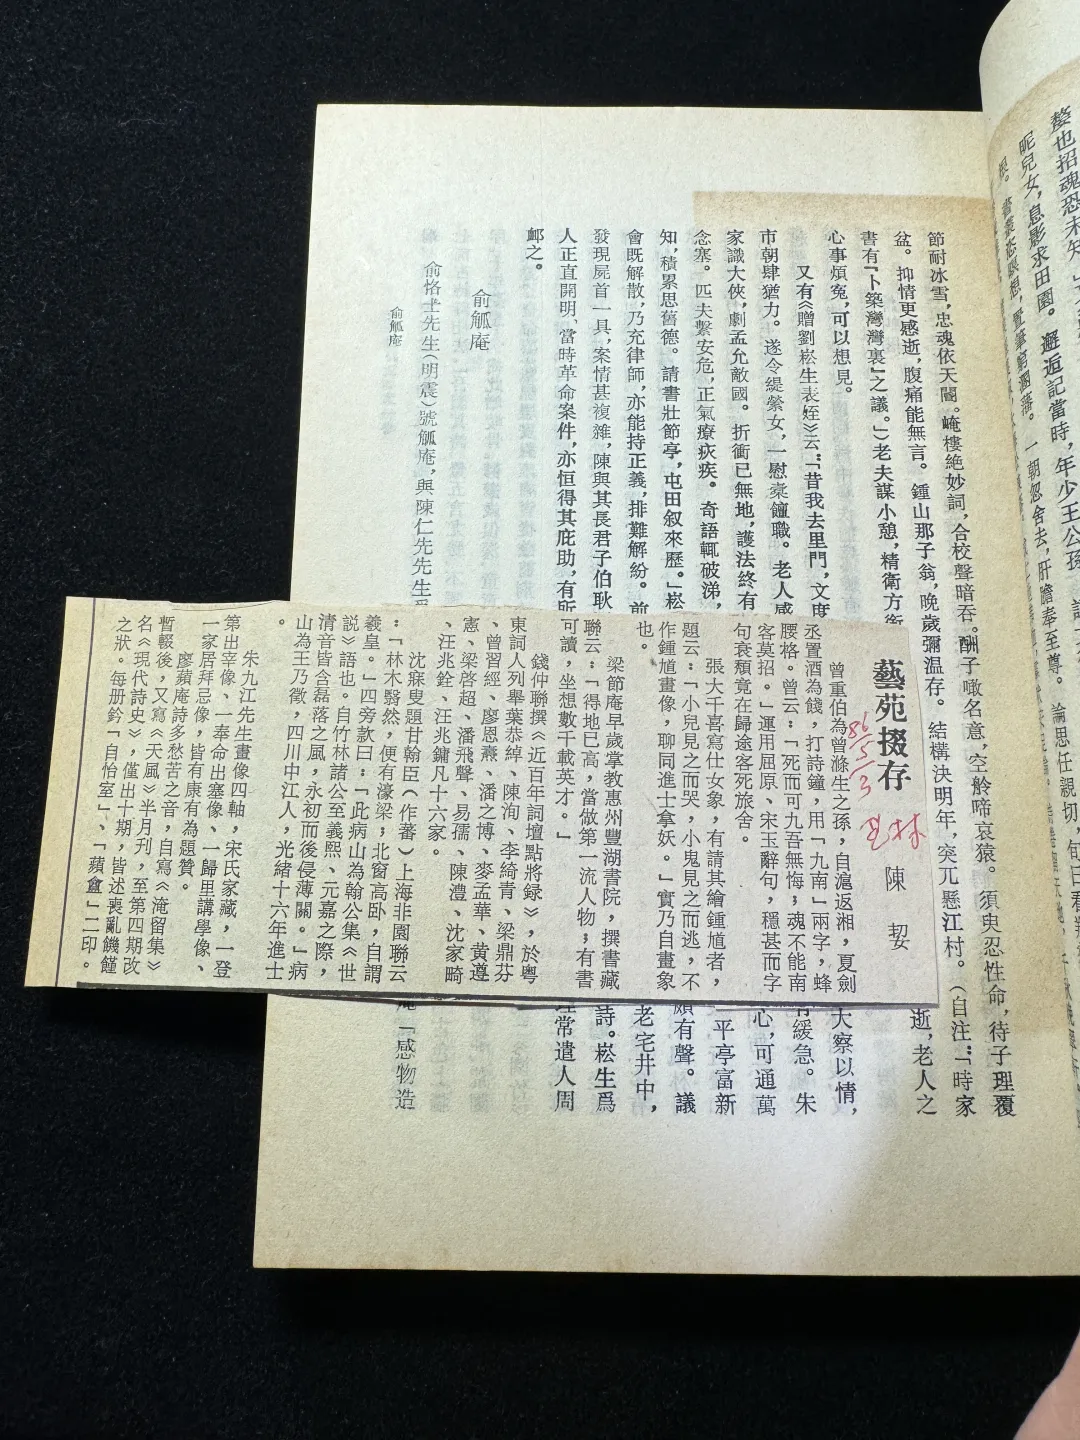 昵兒女，息影求田園。邂逅記當時，年少王公孫
一朝忽舍去，肝膽奉至尊。論思任親切，旬日看
節耐冰雪，忠魂依天閽。崦樓絕妙詞，合校聲暗吞。酬子噉名意，空舲啼哀猿。須臾忍性命，待子理覆
盆。抑情更感逝，腹痛能無言。鍾山那子翁，晚歲彌温存。結構決明年，突兀懸江村。（自注：「時家
書有『卜築灣灣裏』之議。」）老夫謀小憩，精衛方衝
逝，老人之
心事煩冤，可以想見。
又有《贈劉崧生表姪》云：「昔我去里門，文度
大察以情，
市朝肆猶力。遂令緹縈女，一慰橐饘職。老人感
有緩急。朱
家識大俠，劇孟允敵國。折衝已無地，護法終有
心，可通萬
念塞。匹夫繫安危，正氣療疢疾。奇語輒破涕，
平亭富新
知，積累思舊德。請書壯節亭，屯田叙來歷。」崧
頗有聲。議
會既解散，乃充律師，亦能持正義，排難解紛。前
老宅井中，
發現屍首一具，案情甚複雜，陳與其長君子伯耿
詩。崧生爲
人正直開明，當時革命案件，亦恒得其庇助，有所
理常遣人周
卹之。
俞觚庵
俞恪士先生（明震）號觚庵，與陳仁先先生爲
庵「感物造
俞觚庵
藝苑掇存
86/5/3
陳㓞
曾重伯為曾滌生之孫，自滬返湘，夏劍
丞置酒為餞，打詩鐘，用「九南」兩字，蜂
腰格。曾云：「死而可九吾無悔；魂不能南
客莫招。」運用屈原、宋玉辭句，穩甚而字
句衰頹竟在歸途客死旅舍。
張大千喜寫仕女象，有請其繪鍾馗者，
題云：「小兒見之而哭，小鬼見之而逃，不
作鍾馗畫像，聊同進士拿妖。」實乃自畫象
也。
梁節庵早歲掌教惠州豐湖書院，撰書藏
聯云：「得地已高，當做第一流人物；有書
可讀，坐想數千載英才。」
錢仲聯撰《近百年詞壇點將録》，於粤
東詞人列舉葉恭綽、陳洵、李綺青、梁鼎芬
、曾習經、廖恩燾、潘之博、麥孟華、黄遵
憲、梁啓超、潘飛聲、易孺、陳澧、沈家畸
、汪兆銓、汪兆鏞凡十六家。
沈寐叟題甘翰臣（作蕃）上海非園聯云
：「林木翳然，便有濠梁；北窗高卧，自謂
羲皇。」四旁款曰：「此病山為翰公集《世
説》語也。自竹林諸公至義熙、元嘉之際，
清音皆含磊落之風，永初而後侵薄關。」病
山為王乃徵，四川中江人，光緒十六年進士
。
朱九江先生畫像四軸，宋氏家藏，一登
第出宰像、一奉命出塞像、一歸里講學像、
一家居拜忌像，皆有康有為題贊。
廖蘋庵詩多愁苦之音，自寫《淹留集》
暫輟後，又寫《天風》半月刋，至第四期改
名《現代詩史》，僅出十期，皆述喪亂饑饉
之狀。每册鈐「自怡室」、「蘋盦」二印。